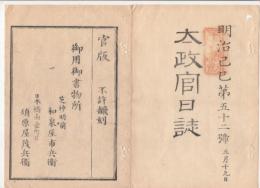 明治己巳第五十二號
五月十九日
太政官日誌
官版
不許飜刻
御用御書物所
芝神明前
和泉屋市兵衛
日本橋南壱町目
須原屋茂兵衛